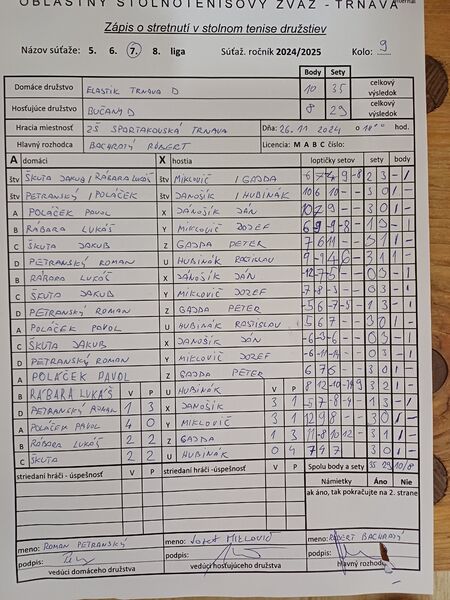 OBLASTNÝ STOLNOTENISOVÝ ZVÄZ - TRNAVA
Zápis o stretnutí v stolnom tenise družstiev
Názov súťaže: 5. 6. 7. 8. liga Súťaž. ročník 2024/2025 Kolo: 9
Body Sety
Domáce družstvo ELASTIK TRNAVA D 10 35 celkový výsledok
Hosťujúce družstvo BUČANY D 8 29 celkový výsledok
Hracia miestnosť ZŠ SPARTAKOVSKÁ TRNAVA Dňa: 26.11 2024 o hod.
Hlavný rozhodca BACHRATÝ RÓBERT Licencia: M A B C číslo:
A domáci X hostia loptičky setov sety body
štv ŠKUTA JAKUB / RÁBARA LUKÁŠ štv MIKLOVIČ / GAJDA 2 3 - 1
štv PETRANSKÝ / POLÁČEK štv DANOŠÍK / HUBINÁK 10 6 10 - - 3 0 1 -
A POLÁČEK PAVOL X DÁNOŠÍK JÁN 10 7 9 - - 3 0 1 -
B RÁBARA LUKÁŠ Y MIKLOVIČ JOZEF 1 3 - 1
C ŠKUTA JAKUB Z GAJDA PETER 3 1 1 -
D PETRANSKÝ ROMAN U HUBINÁK RASTISLAV 3 1 1 -
B RÁBARA LUKÁŠ X DÁNOŠÍK JÁN 0 3 - 1
C ŠKUTA JAKUB Y MIKLOVIČ JOZEF -7 -8 -3 - - 0 3 - 1
D PETRANSKÝ ROMAN Z GAJDA PETER 1 3 - 1
A POLÁČEK PAVOL U HUBINÁK RASTISLAV 5 6 7 - - 3 0 1 -
C ŠKUTA JAKUB X DANOŠÍK JÁN -6 -3 -6 - - 0 3 - 1
D PETRANSKÝ ROMAN Y MIKLOVIČ JOZEF 0 3 - 1
A POLÁČEK PAVOL Z GAJDA PETER 6 7 6 - - 3 0 1 -
B RÁBARA LUKÁŠ V P U HUBINÁK V P 3 2 1 -
D PETRANSKÝ ROMAN 1 3 X DANOŠÍK 3 1 -5 7 -8 -4 - 1 3 - 1
A POLÁČEK PAVOL 4 0 Y MIKLOVIČ 3 1 12 9 8 - - 3 0 1 -
B RÁBARA LUKÁŠ 2 2 Z GAJDA 1 3 11 -8 10 12 - 3 1 1 -
C ŠKUTA 2 2 U HUBINÁK 0 4 7 4 7 3 0 1 -
striedaní hráči - úspešnosť V P striedaní hráči - úspešnosť V P Spolu body a sety 35 29 10/8
Námietky Áno Nie
ak áno, tak pokračujte na 2. strane
meno: ROMAN PETRANSKÝ meno: JOZEF MIKLOVIČ meno: RÓBERT BACHRATÝ
podpis: podpis: podpis:
vedúci domáceho družstva vedúci hosťujúceho družstva hlavný rozhodca